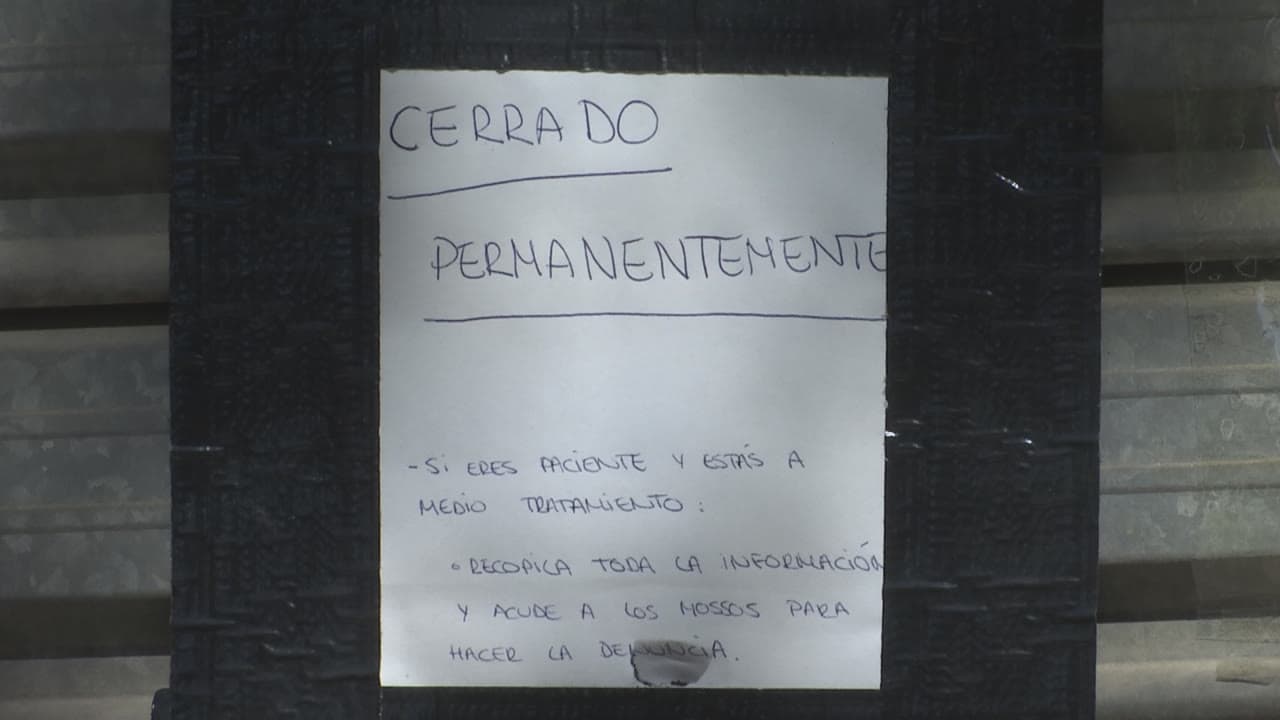 CERRADO
PERMANENTEMENTE
- Si ERES PACIENTE Y ESTÁS A
MEDIO TRATAMIENTO:
• RECOPILA TODA LA INFORMACIÓN
Y ACUDE A LOS MOSSOS PARA
HACER LA DENUNCIA.